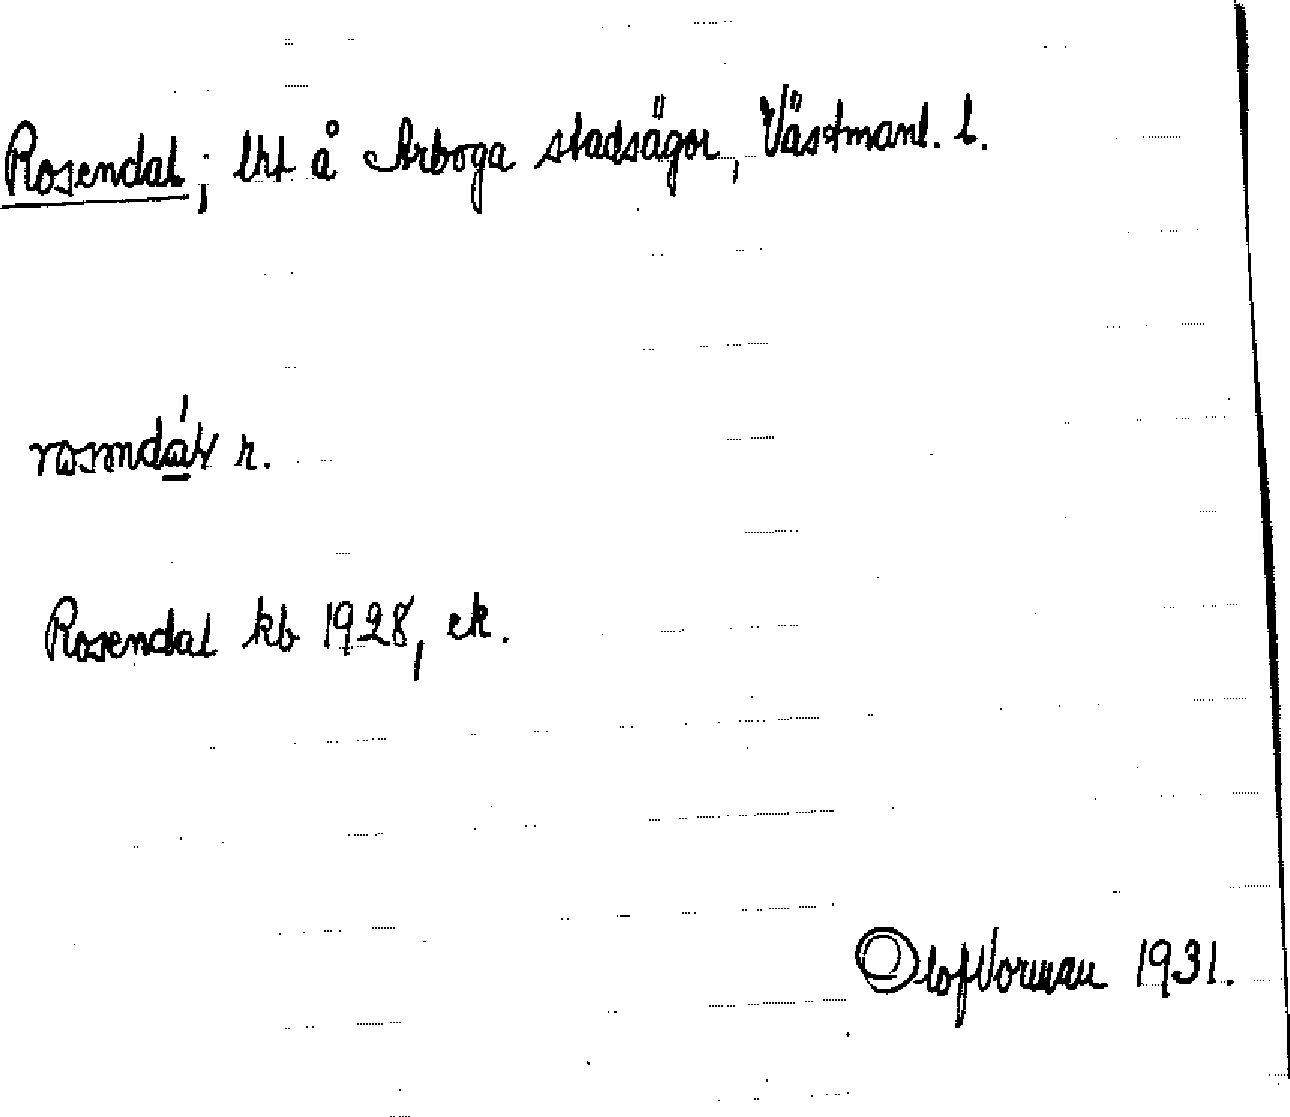 Rosendal; lht å Arboga stadsägor, Västmanl. l.
r.
Rosendal kb 1928, ek.
Olof Vorman 1931.